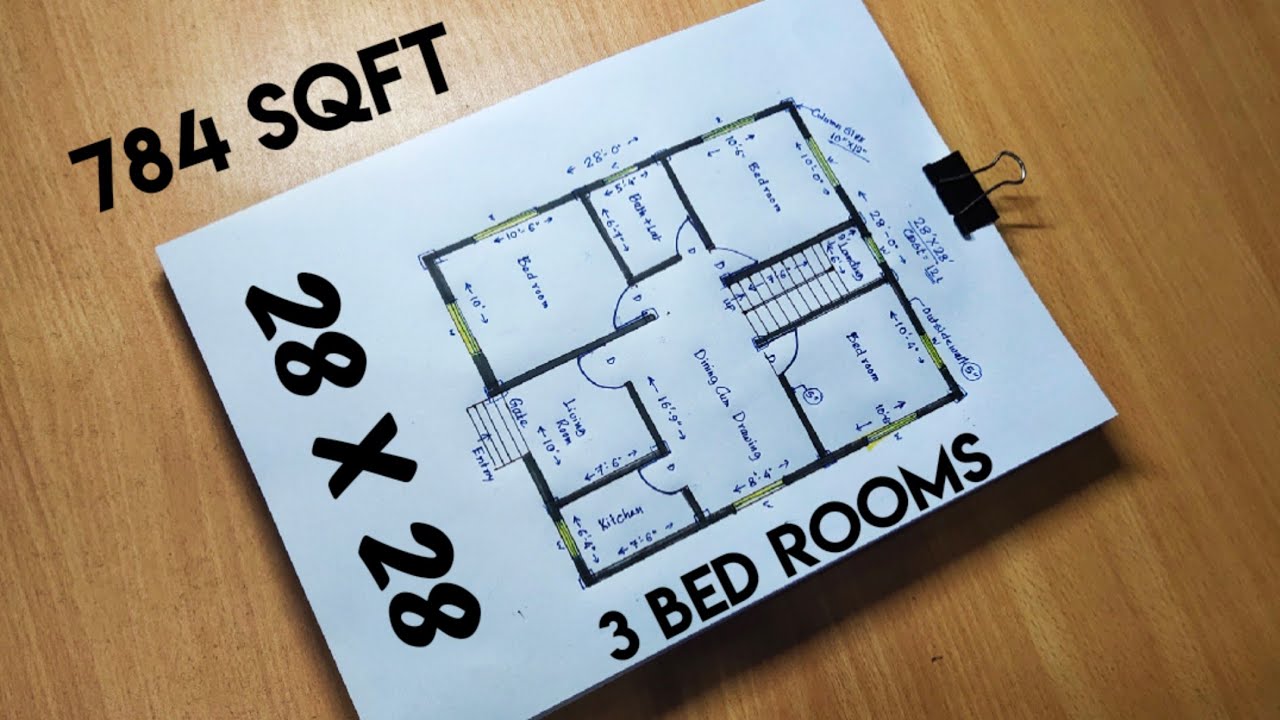 784 SQFT
28 X 28
3 BED ROOMS
28'-0"
Column Size
10"x12"
10'-6"
Bedroom
10'-0"
5'-4"
Bath+Lat
6'-7"
10'-6"
Bedroom
10'
28'-0"
28'x28'
Landing
UP
Outside wall 5"
10'-4"
Bedroom
10'-6"
5"
Dining Cum Drawing
16'-9"
8'-4"
Gate
Living
Room
10'
7'-6"
Entry
Kitchan
6'-4"
7'-6"
D
D
D
D
D
D
W
W
W
W
W
W
W